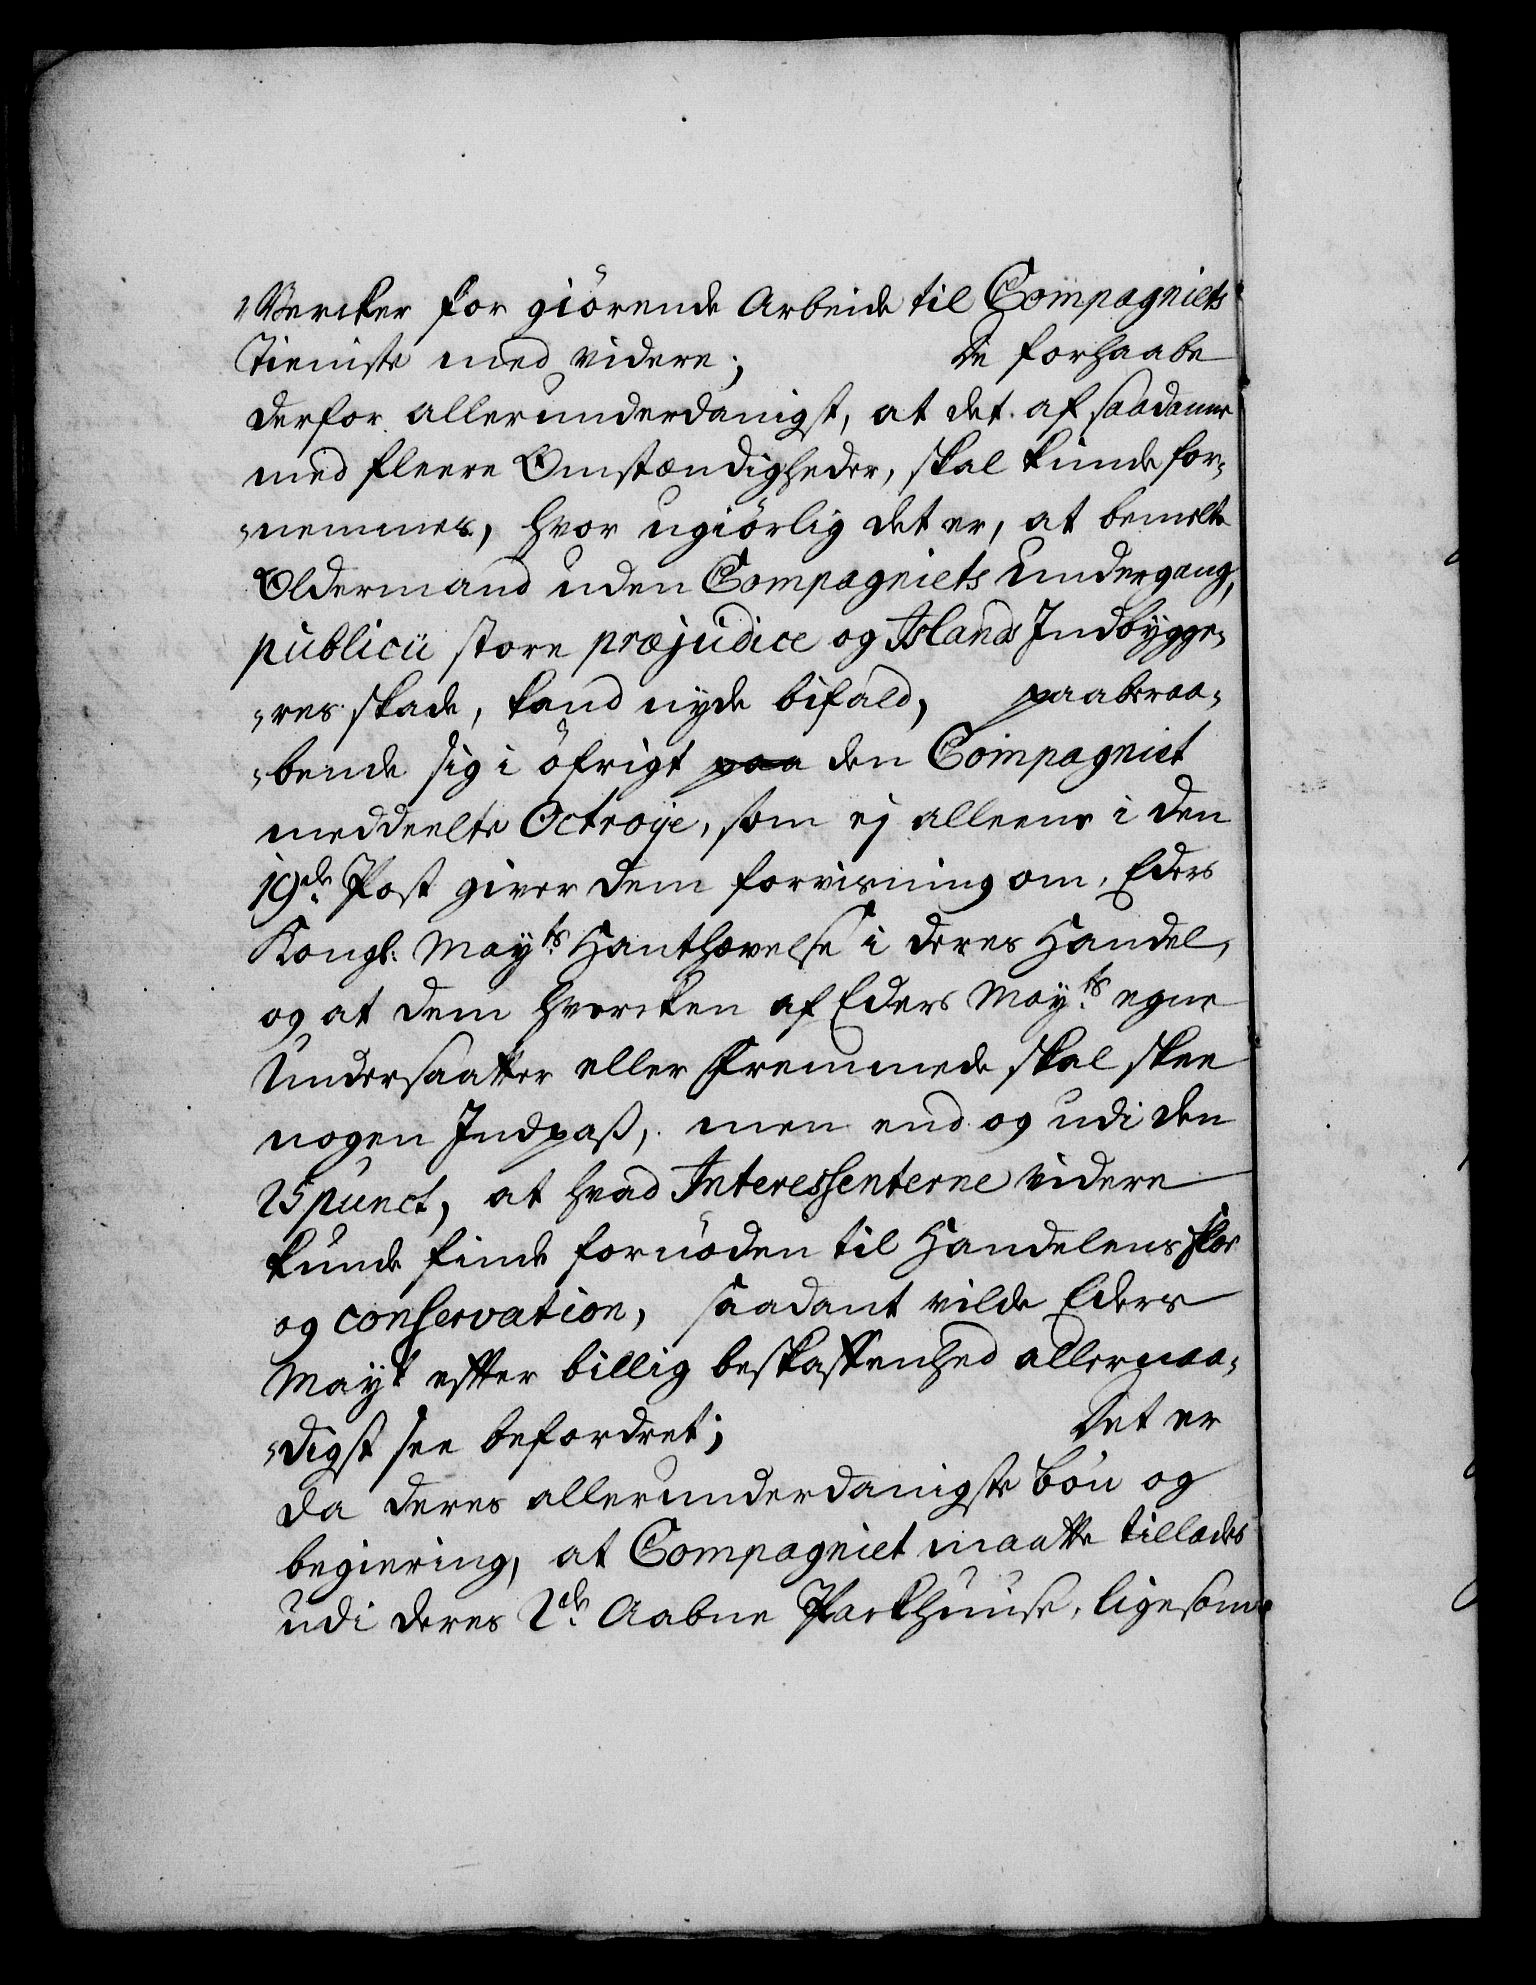 „Wercker for giörende Arbeide til Compagniets
Tieniste med videre; De forhaabe
derfor allerunderdanigst, at det af saadanne
med fleere Omstændigheder, skal kunde for„
„nemmes, hvor ugiörlig det er, at bemelte
Oldermand uden Compagniets Undergang,
publicii store præjudice og Islands Indbygge„
„res skade, kand nyde bifald, paaberaa„
„bende sig i öfrigt paa den Compagniet
meddeelte Octroye, som ej alleene i den
19de Post giver dem forvisning om, Eders
Kongl: Mayts Hanthævelse i deres Handel,
og at dem hvercken af Eders Mayts egne
Undersaatter eller Fremmede skal skee
nogen Indpaß, men end og udi den
25 punct, at hvad Interessenterne videre
kunde finde fornöden til Handelens flor
og conservation, saadant vilde Eders
Mayt effter billig beskaffenhed allernaa„
„digst see befordret; Det er
da deres allerunderdanigste bön og
begiering, at Compagniet maatte tillades
udi deres 2de Aabne Packhuuse, ligesom